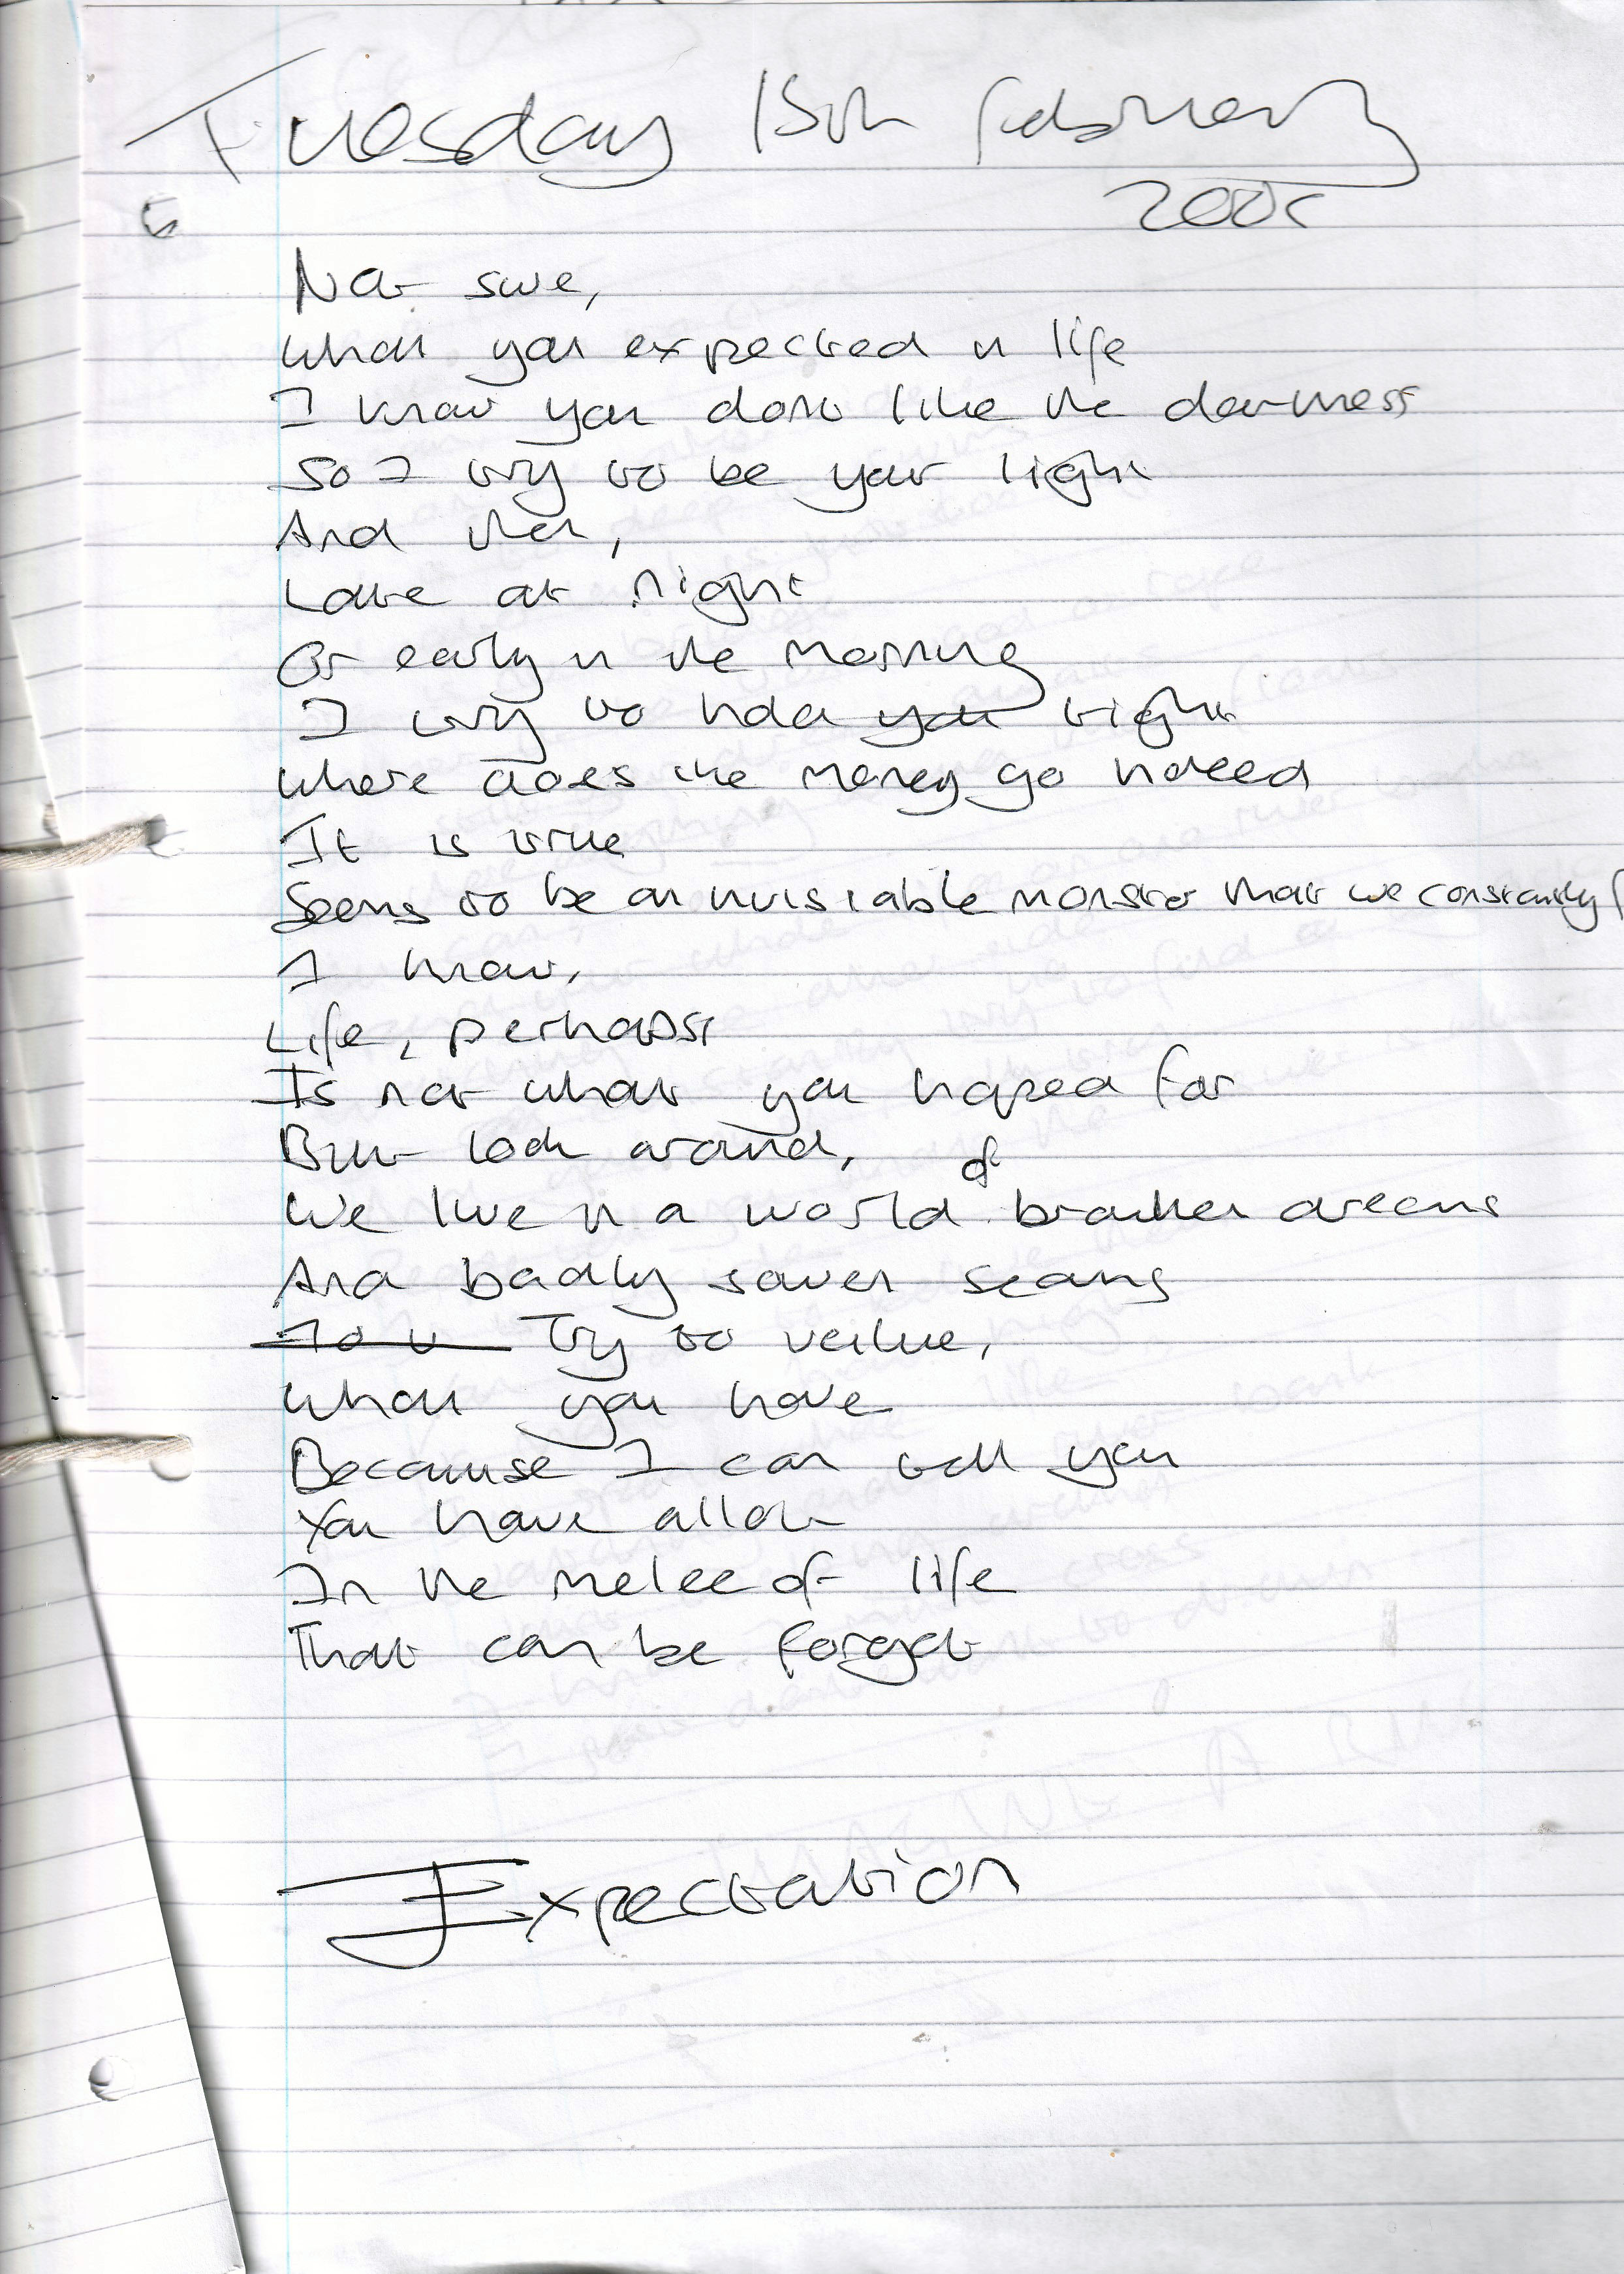 Tuesday 15th February
2005
Not sure,
What you expected in life
I know you dont like the darkness
So I try to be your light
And then,
Late at night
Or early in the morning
I try to hold you tight
Where does the money go indeed
It is true
Seems to be an invisiable monster that we constantly
I know,
Life, perhaps
Is not what you hoped for
But look around,
We live in a world of broken dreams
And badly sown seams
Try to value,
What you have
Because I can tell you
You have allot
In the melee of life
That can be forgot
Expectation